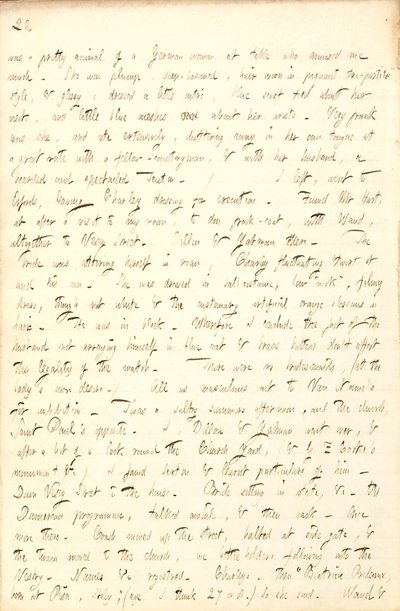 20
was a pretty animal of a German woman at table who amused me
much. She was plump, deep-bosomed, hair worn in piquant
style, & glossy; dressed a little outré, blue scarf tied about her
and little blue about her wrists. Very frank
was she, and ate extensively, chattering away in her own tongue at
a great rate with a fellow-countryman, & with her husband, a
bearded and spectacled Teuton. / I left, went to
leaving Charley dressing for execution. Found Mr Hart,
at after a visit to my room, to don frock-coat, with Ward,
altogether to Vesey Street. Dillon & Yatman there. The
bride was attiring herself in room Charley fluctuating twixt it
and his own. She was dressed in ball costume, "low neck", filmy
dress, though not white & the customary artificial orange blossoms in
hair. He was in black. Wherefore I conclude the fact of the
husband not arraying himself in blue coat & brass buttons don't affect
the legality of the match. There were no bridesmaids, at the
lady's own desire. / All us masculines out to Van
for imbibition. 'Twas a sultry summers afternoon, and the church,
Saint Paul's opposite. I, Dillon & Yatman went over, &
after a bit of a look round the Church Yard, (& G F Cooke's
monument &c) I found Sexton & learnt particulars of him.
Down Vesey Street to the house. Bride sitting in state, &c. The
programme, talked awhile, & then back. Once
more there. Coach moved up the street, halted at side gate, &
the twain moved to the church, we bottleholders following into the
Vestry. Names &c registered. Charley's, then "Beatrice
born at Pisa, Italy; (age I think 27 or 8.) so she said. Ward &